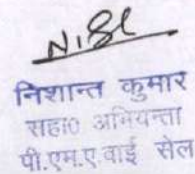 निशान्त कुमार
सहा० अभियन्ता
पी.एम.ए.वाई सेल